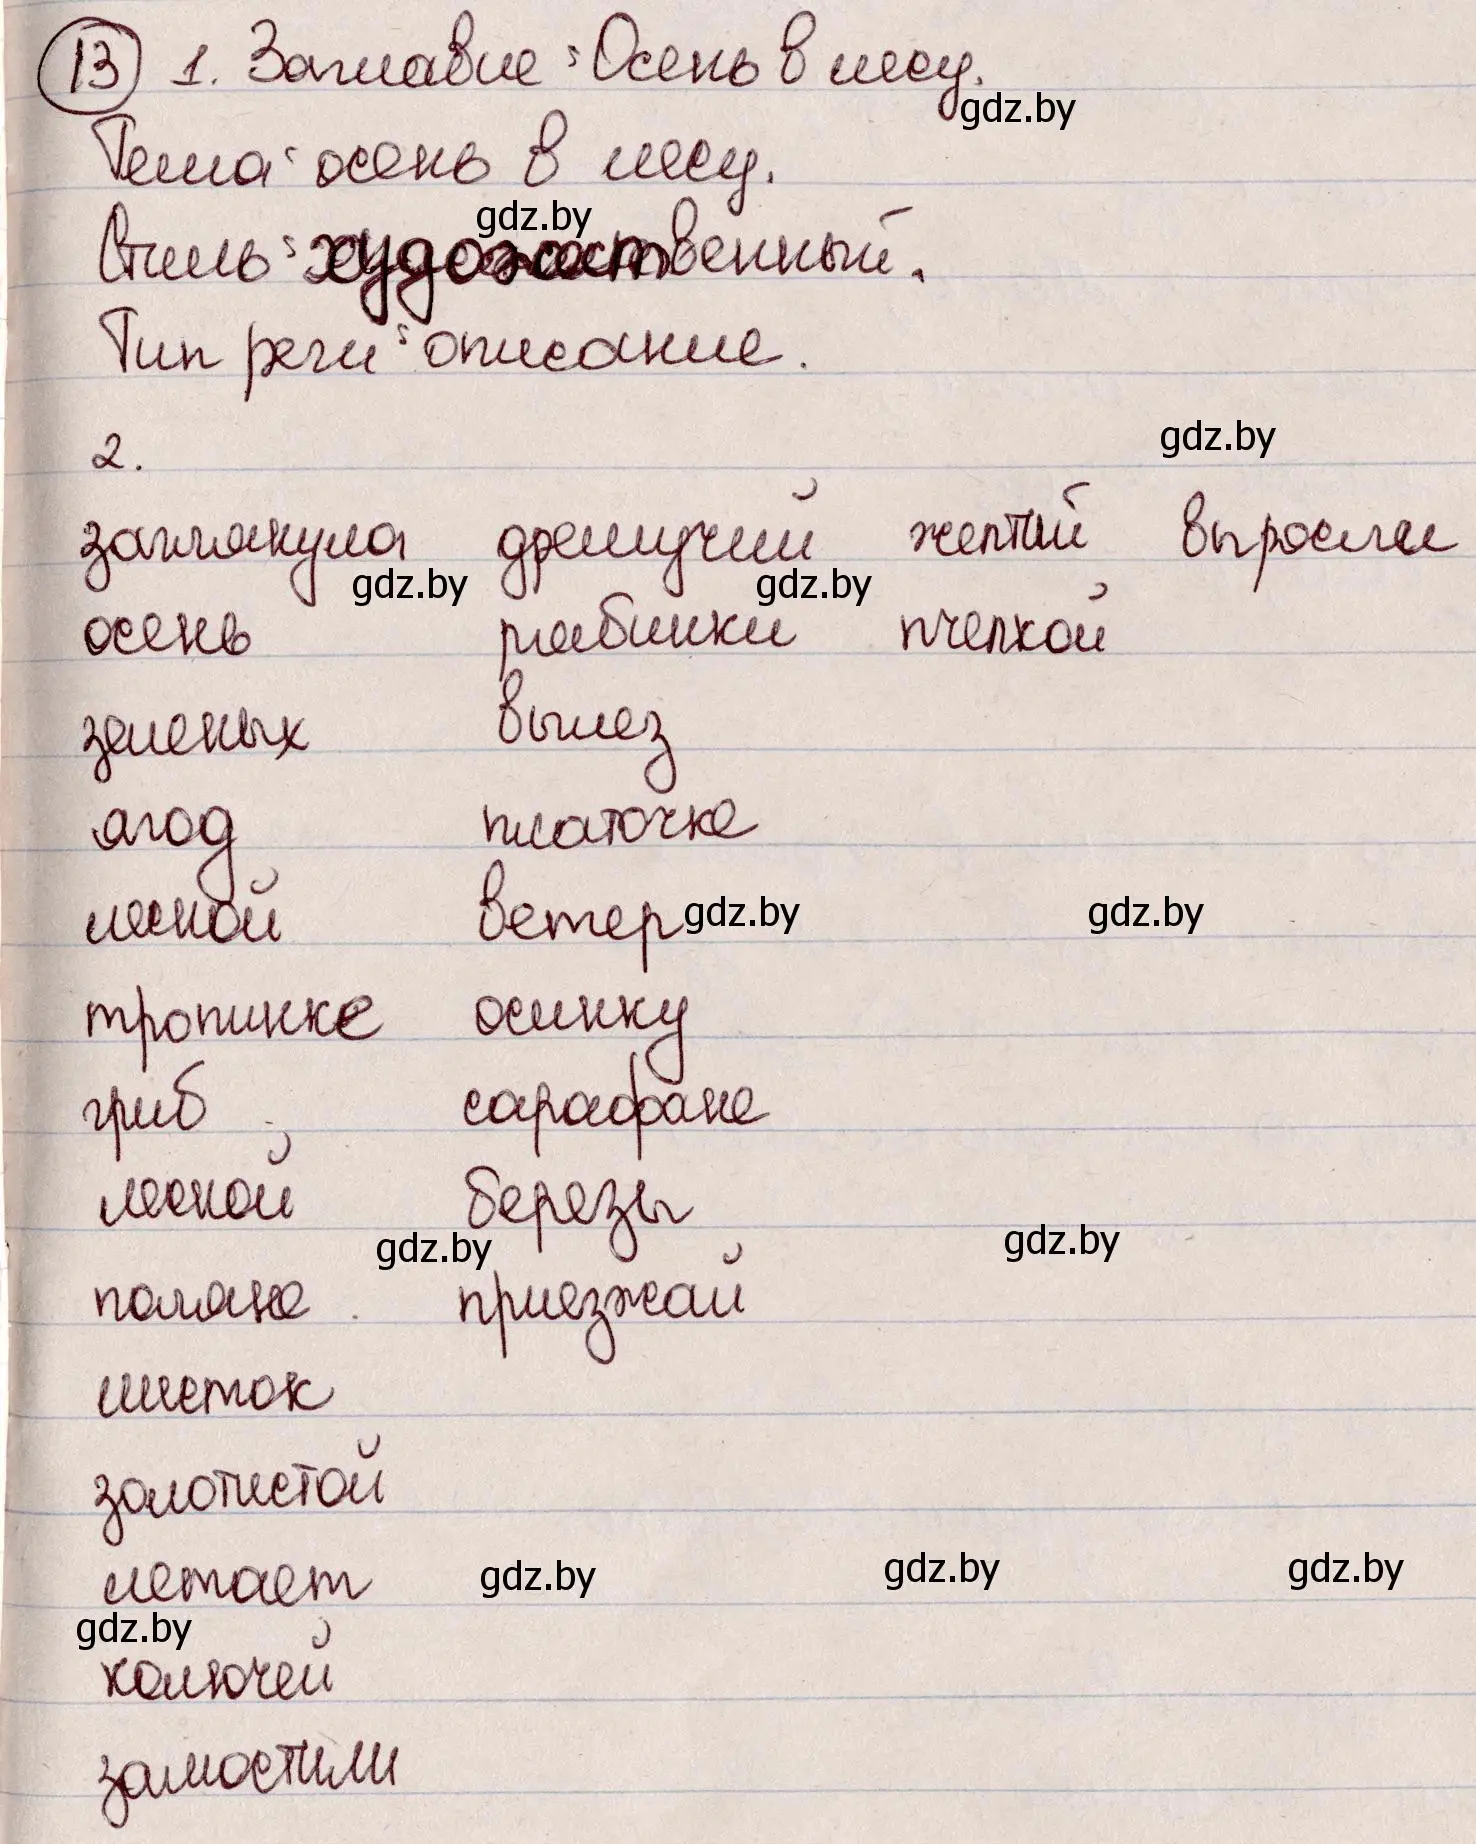 13 1. Заглавие: Осень в лесу.
gdz.by
Тема: осень в лесу.
gdz.by
Стиль: художественный.
Тип речи: описание.
gdz.by
2.
заглянула дремучий желтый выросли
gdz.by gdz.by
осень рябинки пчелкой
зеленых вылез
ягод платочке
лесной ветер gdz.by gdz.by
тропинке осинку
гриб сарафане
лесной березы
gdz.by gdz.by
поляне приезжай
листок
золотистой
летает gdz.by gdz.by gdz.by
gdz.by
колючей
замостили